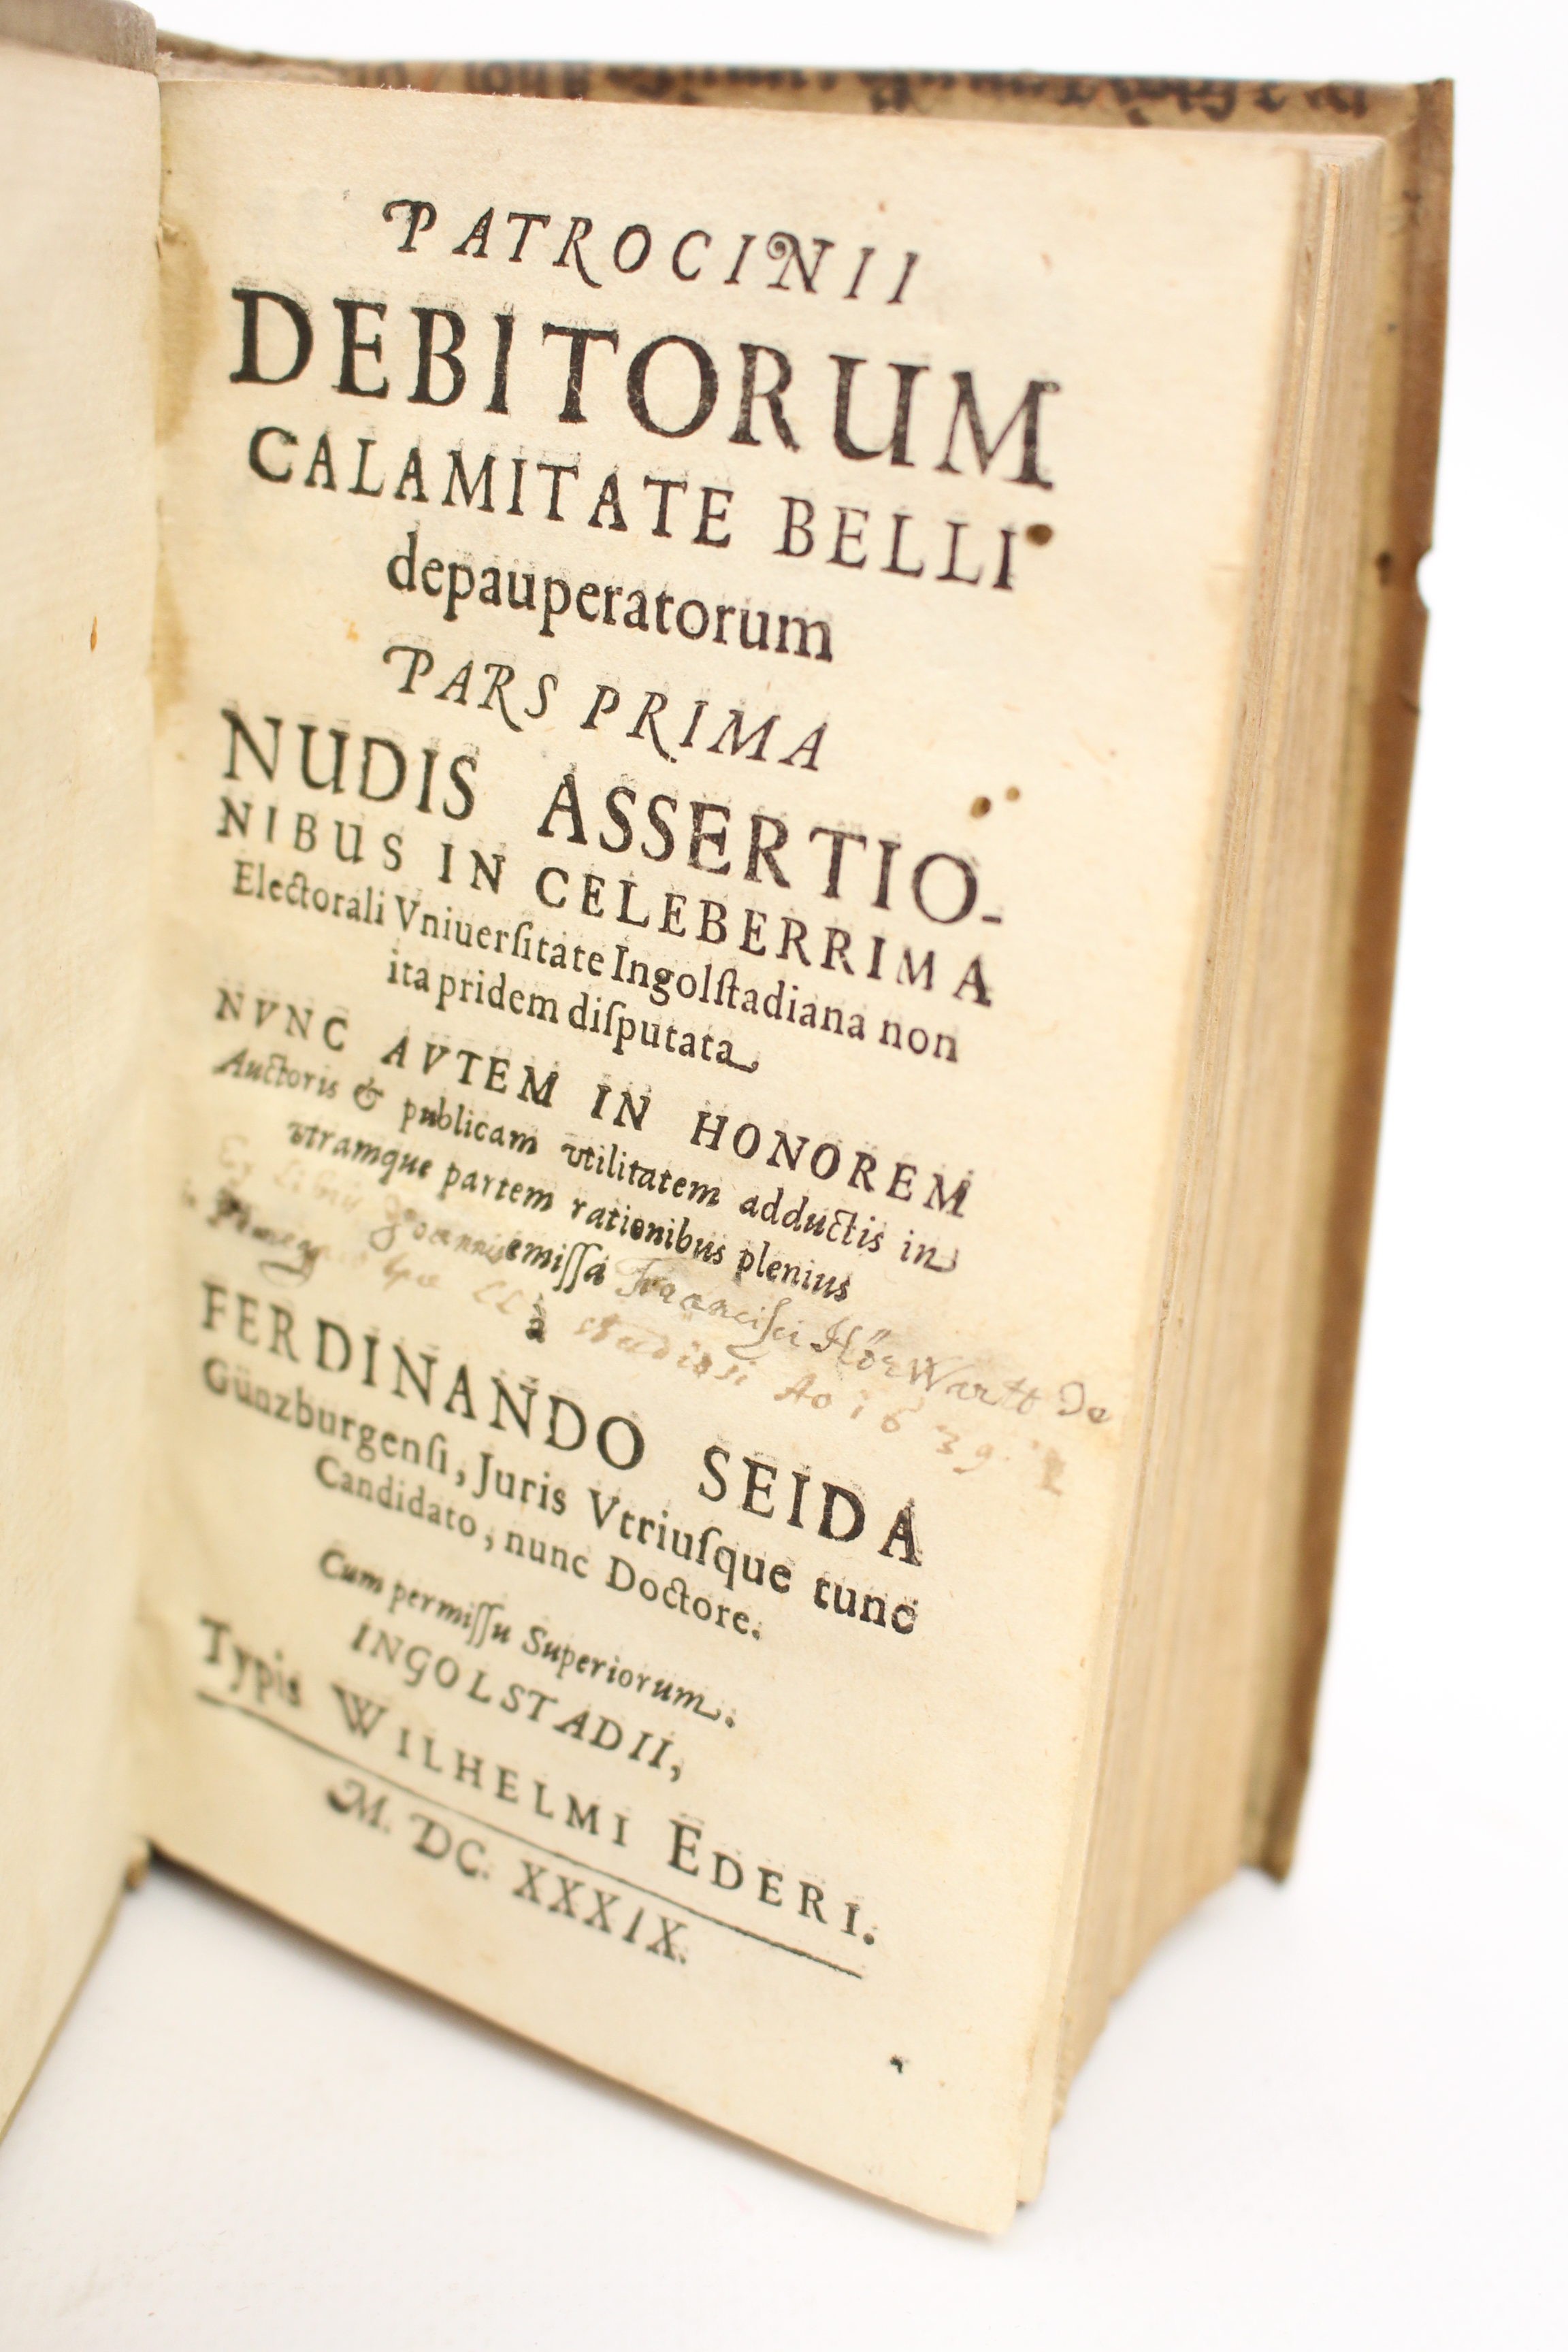 PATROCINII
DEBITORUM
CALAMITATE BELLI
depauperatorum
PARS PRIMA
NUDIS ASSERTIO-
NIBUS IN CELEBERRIMA
Electorali Vniuerſitate Ingolſtadiana non
ita pridem diſputata
NVNC AVTEM IN HONOREM
Auctoris & publicam vtilitatem adductis in
vtramque partem rationibus plenius
emiſſa
Ex Libris Joannis Franciſci HörWartt De
studiosi Ao 1639.
à
FERDINANDO SEIDA
Günzburgenſi, Juris Vtriuſque tunc
Candidato, nunc Doctore.
Cum permiſſu Superiorum.
INGOLSTADII,
Typis WILHELMI EDERI.
M. DC. XXXIX.